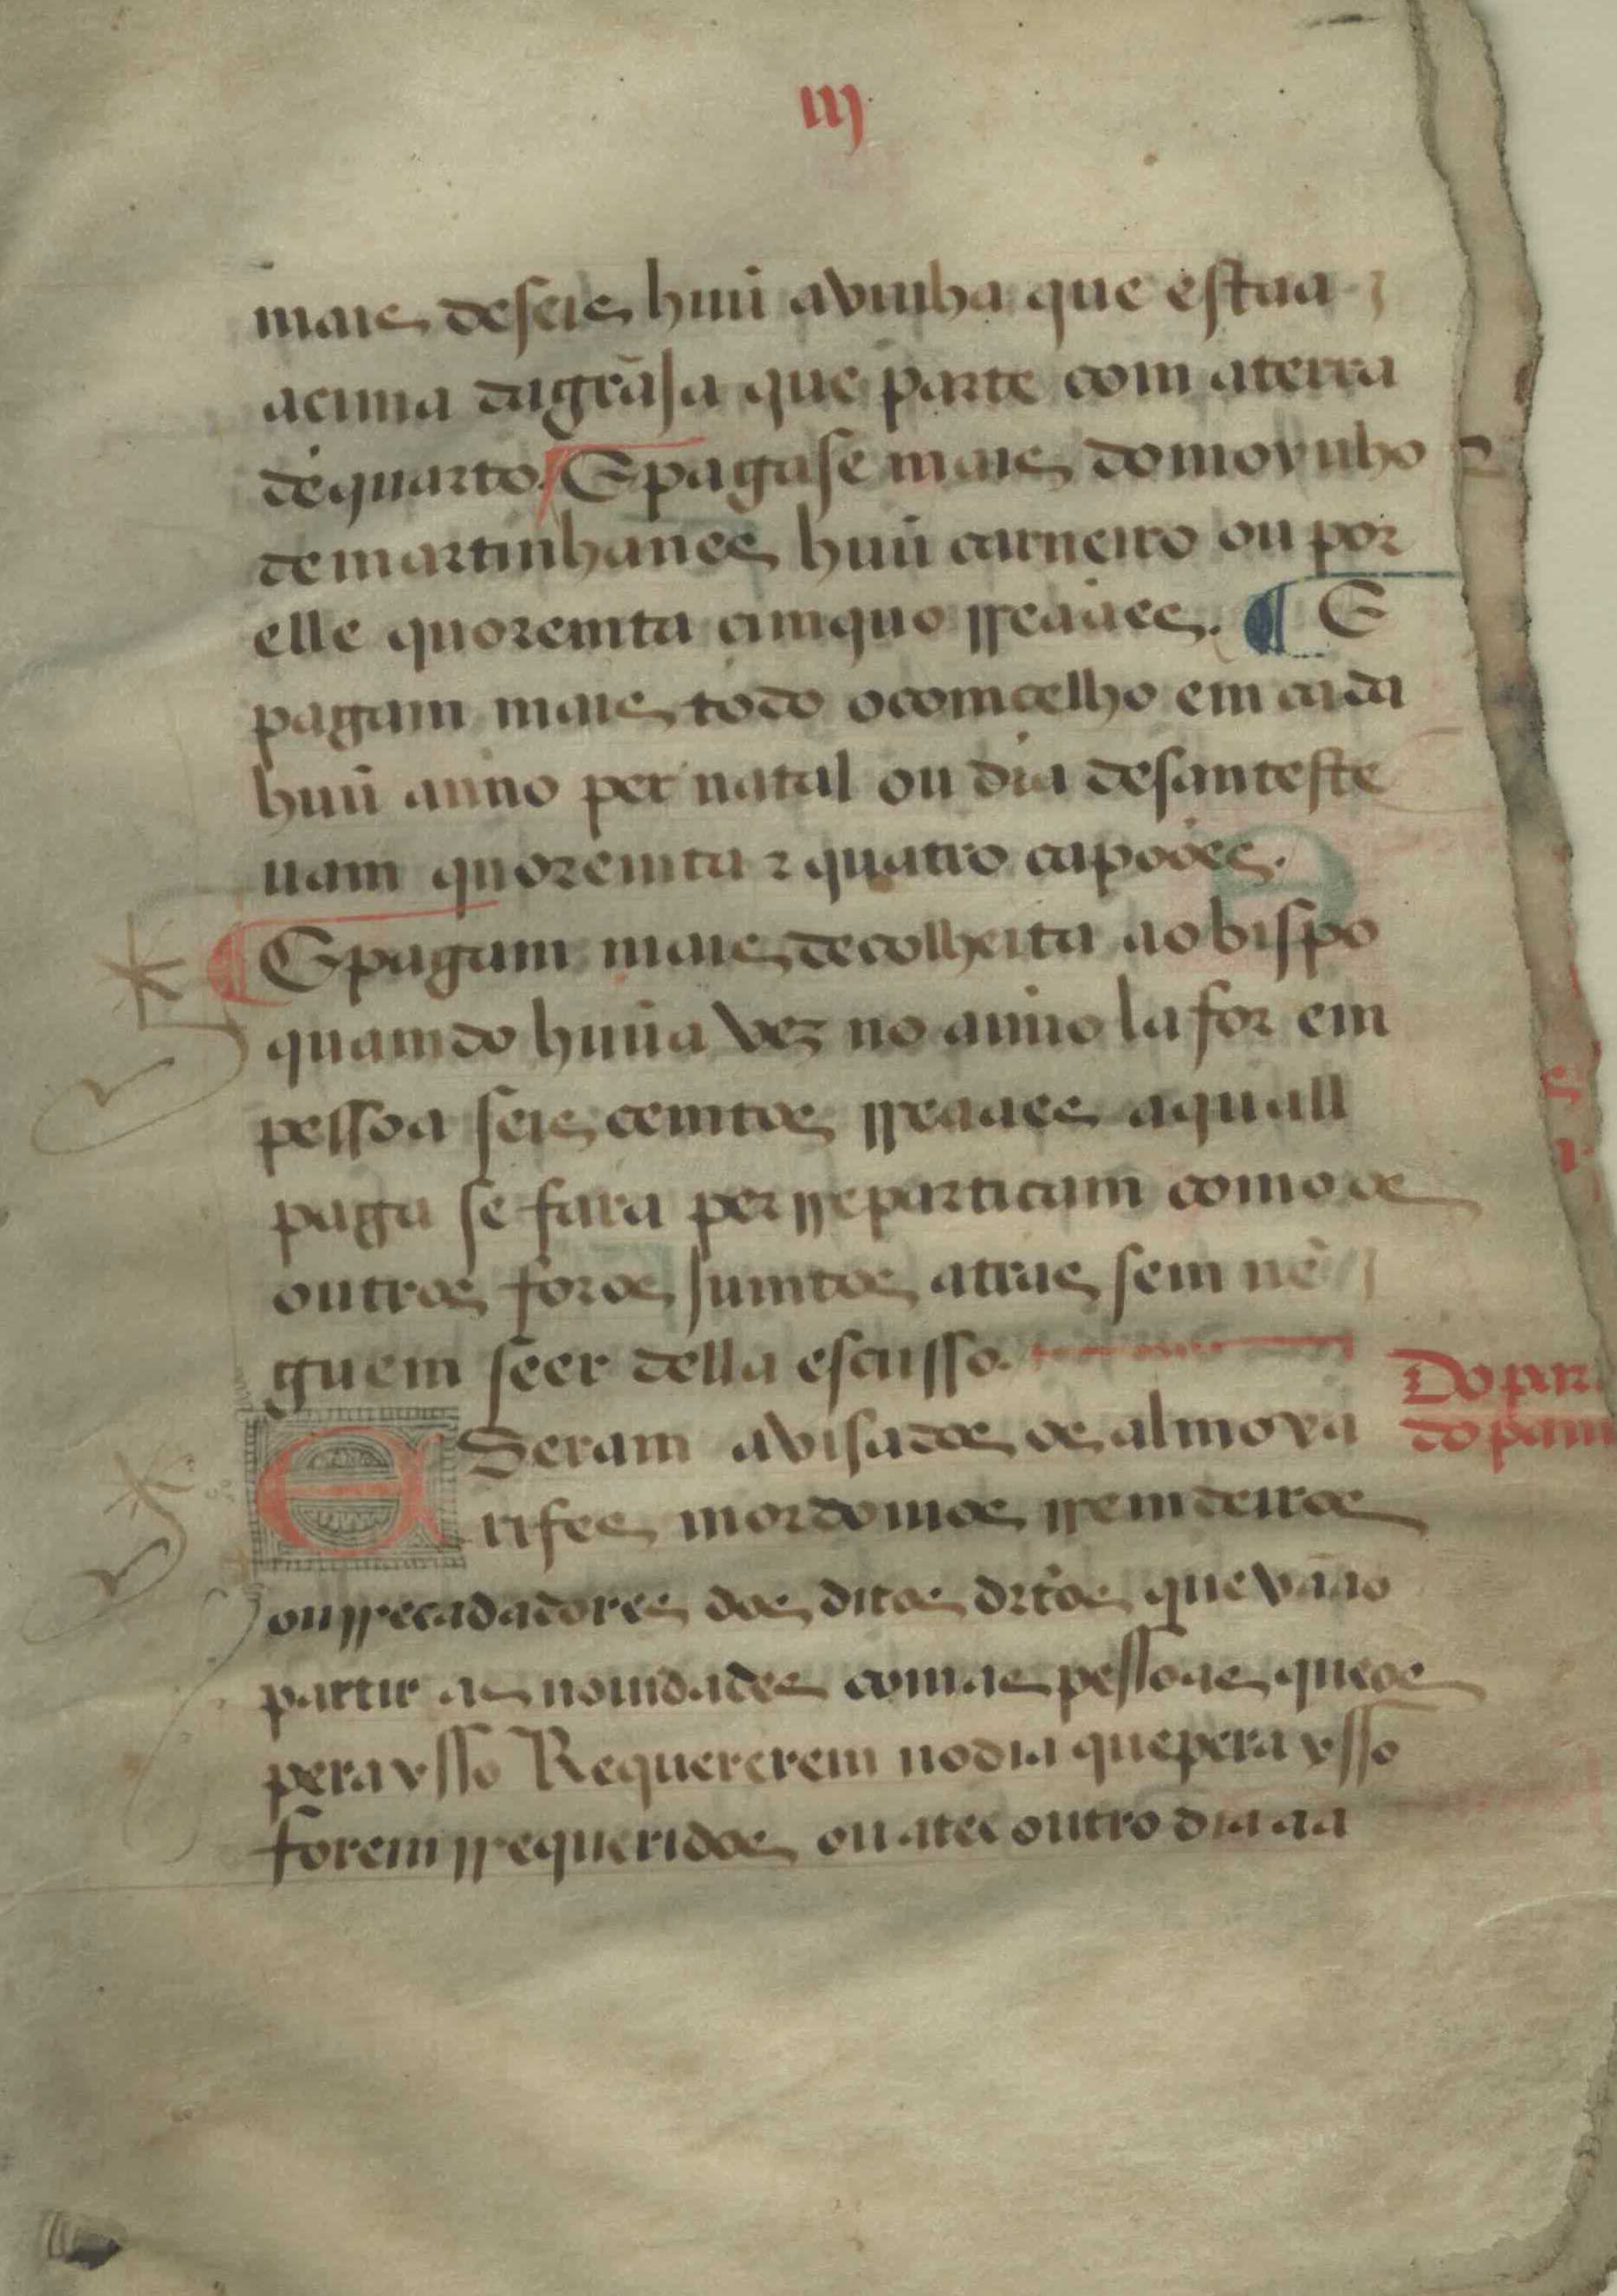 iij
mais de seis huũ a vinha que estaa
acima da grãja que parte com a terra
de quarto E paga se mais do moynho
de martinhanes huũ carneiro ou por
elle quoremta cimquo rreaaes. ¶ E
pagam mais todo o comcelho em cada
huũ anno per natal ou dia de santeste
uam quoremta ⁊ quatro capoões.
¶ E pagam mais de colheita ao bispo
quamdo huũa vez no anno la for em
pessoa seis cemtos rreaaes a quall
paga se fara per rreparticam como os
outros foros jumtos atras sem nẽ
guem seer della escusso.
E Seram avisados os almoxa
rifes mordomos rremdeiros
ou rrecadadores dos ditos drt̃os que vãao
partir as nouidades com as pessoas que os
pera ysso Requererem no dia que pera ysso
forem rrequeridos ou atee outro dia aa
Do par
do pam